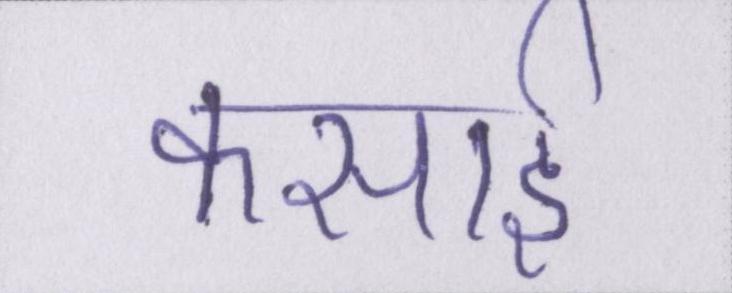 कसाई